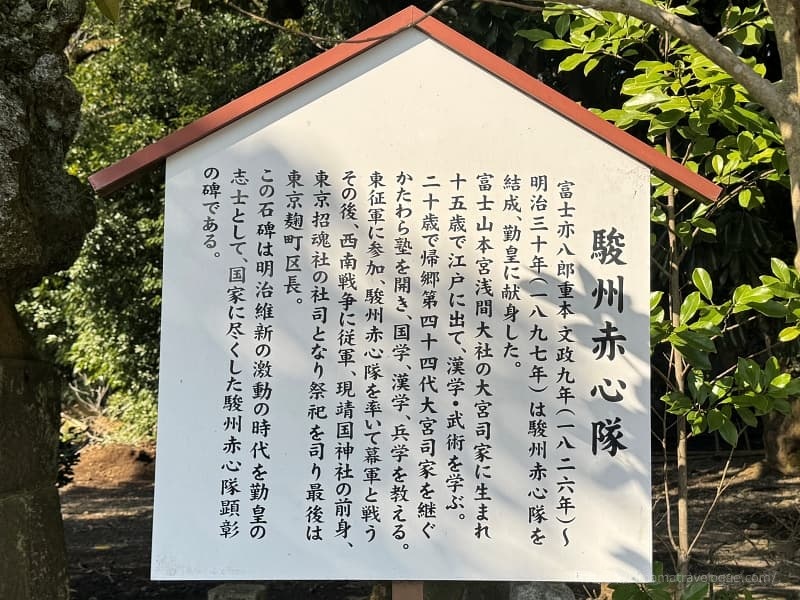 駿州赤心隊
富士亦八郎重本 文政九年(一八二六年)～
明治三十年(一八九七年)は駿州赤心隊を
結成、勤皇に献身した。
富士山本宮浅間大社の大宮司家に生まれ
十五歳で江戸に出て、漢学・武術を学ぶ。
二十歳で帰郷第四十四代大宮司家を継ぐ
かたわら塾を開き、国学、漢学、兵学を教える。
東征軍に参加、駿州赤心隊を率いて幕軍と戦う
その後、西南戦争に従軍、現靖国神社の前身、
東京招魂社の社司となり祭祀を司り最後は
東京麹町区長。
この石碑は明治維新の激動の時代を勤皇の
志士として、国家に尽くした駿州赤心隊顕彰
の碑である。